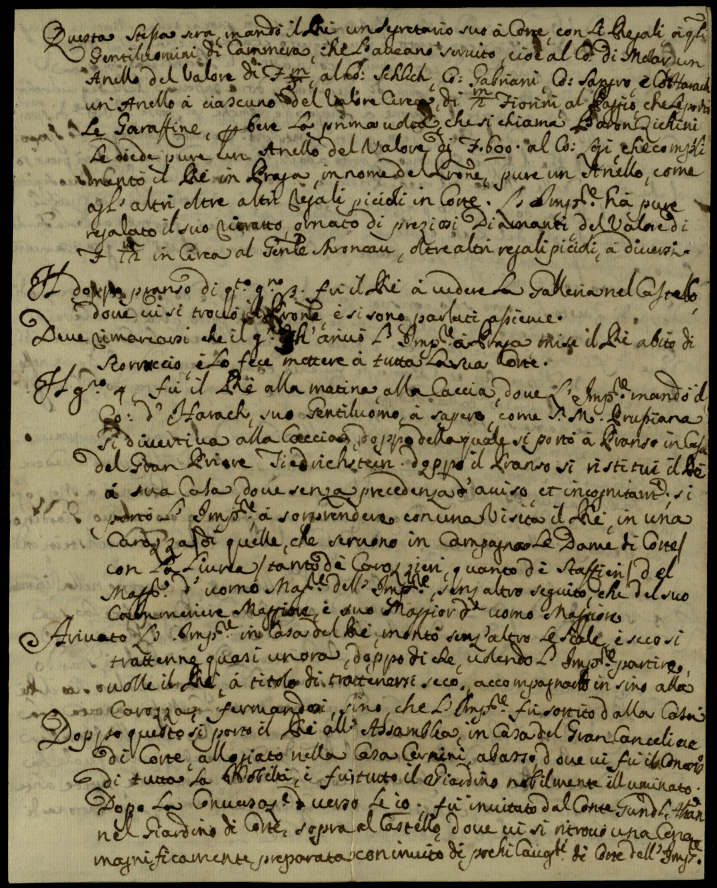 Questa stessa sera, mandò il Rè un Segretario suo à Corte, con Li Regali à gli
Gentiluomini di Cammera, che Lo aveano servito, cioè al Co: di Molar un
Anello del Valore di F. m/3, al Co: Schlich, Co: Gabriani, Co: Sangro, è Co: Harach
un' Anello à ciascuno del Valore Circa, di m/1 Fiorini, al Paggio, che Le portò
Le Garaffine, p bere La prima volta, che si chiama Baron Zichini
Le diede pure un Anello del Valore di F. 600. al Co: che compli
mentò il Rè in Praga, in nome del Prone, pure un Anello, come
agl' altri, oltre altri Regali picioli in Corte. L' Impre hà pure
regalato il suo ritratto, ornato di preziosi Diamanti del Valore di
F in Circa al Genle oltre altri regali picioli, à diversi.
Il doppo pranso di qto gno 3. fù il Rè à vedere La Galleria nel Castello,
dove vi si trovò il Prone, è si sono parlati assieme.
Deve rimarcarsi che il gno ch' arivò L' Impre à Praga mise il Rè abito di
Scorruccio, è Lo fece mettere à tutta La sua Corte.
Il gno 4 fù il Rè alla matina, alla Caccia, dove L' Impre mandò il
Co: d' Harach, suo Gentiluomo, à sapere, come S. M. Prussiana
si divertiva alla Caccia, doppo della quale si portò à Pranso in Casa
del Gran Priore Tiedrichstein. doppo il Pranso si ristituì il Rè
à sua Casa, dove senza precedenza d' aviso, et incognitamte, si
portò L' Impre à sorprendere con una Visita il Rè, in una
Carozza di quelle, che servono in Campagna Le Dame di Corte/
con La Livrea / tanto dè Carozzieri, quanto dè Staffieri / del
Masse d' uomo Masre dell' Impre, senz altro seguito, che del suo
Cammeriere Maggiore, è suo Maggiordo uomo Maggiore
Arivato L' Impre in Casa del Rè, montò senz' altro Le Scale, è seco si
trattenne quasi un ora, doppo di che, volendo L' Impre partire,
volle il Rè, à titolo di trattenersi seco, accompagnarlo in sino alla
Carozza, fermandosi, sino, che L' Impre fù sortito dalla Casa
Doppo questo si portò il Rè all' Assamblea, in Casa del Gran Canceliere
di Corte, allogiato nella Casa Cernini, abasso, dove vi fù il Concorso
di tutta La Nobeltà, è fù tutto il Giardino nobilmente illuminato.
Dopo La Conversane d verso Le 10. fù invitato dal Conte Gund:
nel Giardino di Corte, sopra al Castello, dove vi si ritrovò una Cena
magnificamente preparata con invito di pochi Cavgli di Corte dell' Impre.